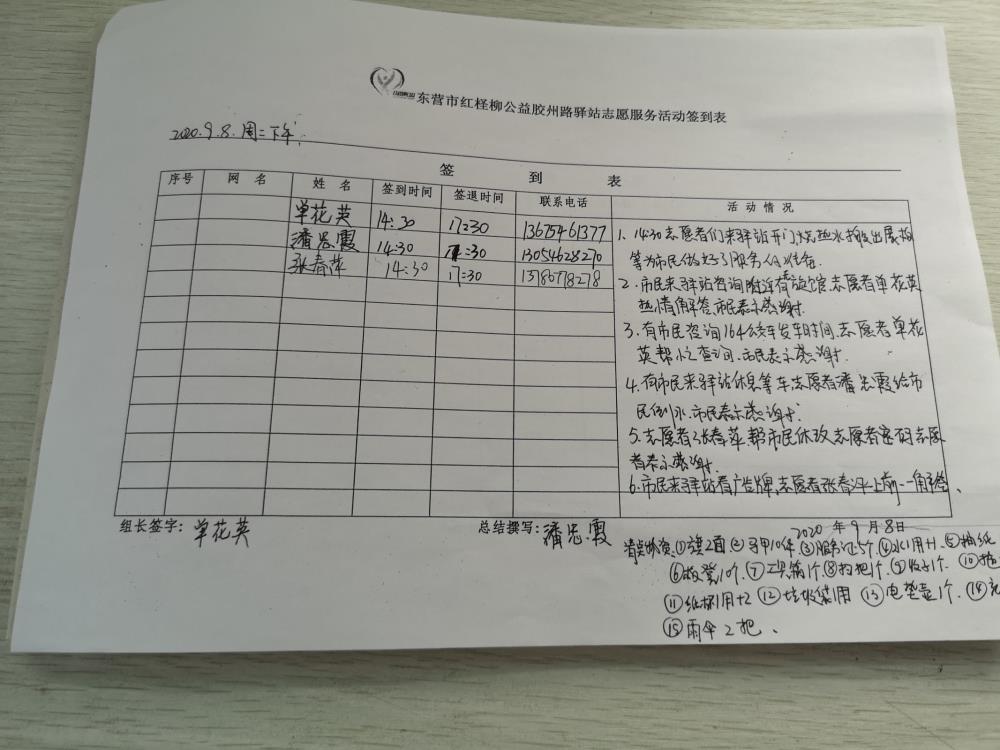 东营市红柽柳公益胶州路驿站志愿服务活动签到表
2020.9.8.周二下午
签 到 表
序号 网名 姓名 签到时间 签退时间 联系电话 活动情况
单花英 14:30 17:30 13675461377
潘忠霞 14:30 17:30 13054628270
张春萍 14:30 17:30 13786778278
1、14:30志愿者们来驿站开门,烧热水搬出展板
等为市民做好了服务的准备.
2、市民来驿站咨询附近看旅馆,志愿者单花英
热情解答,市民表示感谢.
3、有市民咨询164公交车发车时间,志愿者单花
英帮忙查询,市民表示感谢.
4、有市民来驿站休息等车,志愿者潘忠霞给市
民倒水,市民表示感谢.
5、志愿者张春萍帮市民修改志愿者密码志愿
者表示感谢.
6、市民来驿站看广告牌,志愿者张春萍上前一一
组长签字:单花英 总结撰写:潘忠霞 2020年9月8日
清点物资:①旗2面②马甲10件③服务证5个④水1用+1、⑤抽纸
⑥板凳10个.⑦工具箱1个⑧扫把1个.⑨
⑪纸杯1用+2⑫垃圾袋1用⑬电热壶1个.⑭
⑮雨伞2把、